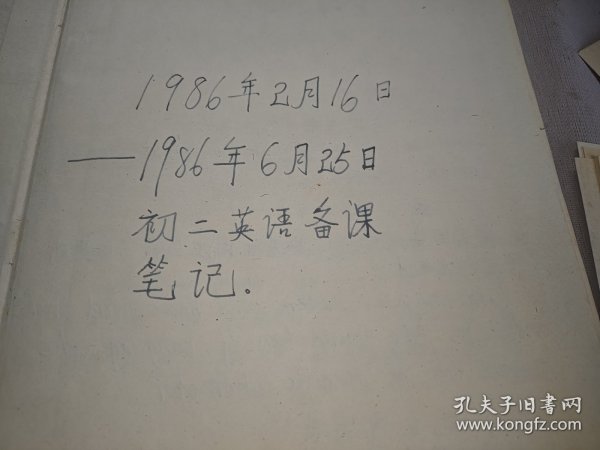 1986年2月16日
——1986年6月25日
初二英语备课
笔记.
孔夫子旧書网
www.kongfz.com